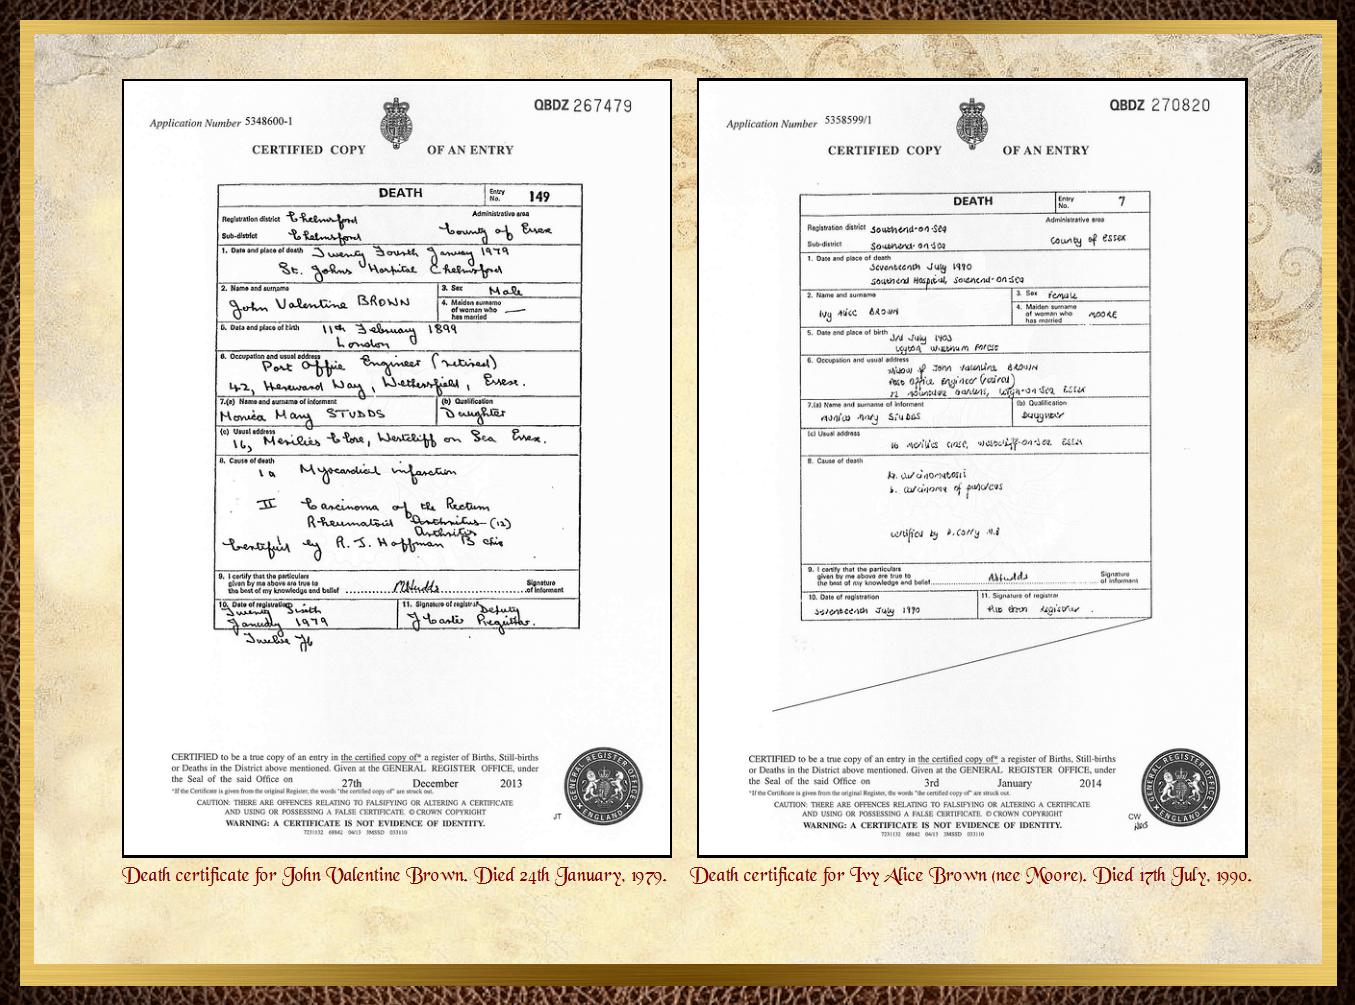 QBDZ 267479
Application Number 5348600-1
CERTIFIED COPY OF AN ENTRY
DEATH Entry No. 149
Registration district Chelmsford Administrative area
Sub-district Chelmsford County of Essex
1. Date and place of death Twenty Fourth January 1979
St. Johns Hospital Chelmsford
2. Name and surname 3. Sex Male
John Valentine BROWN 4. Maiden surname of woman who has married —
5. Date and place of birth 11th February 1899
London
6. Occupation and usual address
Post Office Engineer (retired)
42, Hereward Way, Wethersfield, Essex.
7.(a) Name and surname of informant (b) Qualification
Monica Mary STUDDS Daughter
(c) Usual address
16, Merilies Close, Westcliff on Sea Essex.
8. Cause of death
1a Myocardial infarction
II Carcinoma of the Rectum
Rheumatoid Arthritis (12)
Arthritis
Certified by R. J. Hoffman
9. I certify that the particulars
given by me above are true to
the best of my knowledge and belief MStudds Signature of informant
10. Date of registration 11. Signature of registrar
Twenty Sixth Deputy
January 1979 Registrar.
QBDZ 270820
Application Number 5358599/1
CERTIFIED COPY OF AN ENTRY
DEATH Entry No. 7
Registration district Southend-on-Sea Administrative area
Sub-district Southend-on-Sea County of Essex
1. Date and place of death
Seventeenth July 1990
Southend Hospital, Southend-on-Sea
2. Name and surname 3. Sex Female
Ivy Alice BROWN 4. Maiden surname of woman who has married MOORE
5. Date and place of birth 3rd July 1903
Leyton Waltham Forest
6. Occupation and usual address
Widow of John Valentine BROWN
Post Office Engineer (retired)
Gardens, Leigh-on-Sea Essex
7.(a) Name and surname of informant (b) Qualification
Monica Mary STUDDS Daughter
(c) Usual address
16 Merilies Close, Westcliff-on-Sea Essex
8. Cause of death
1a. Carcinomatosis
b. Carcinoma of pancreas
Certified by M.B
9. I certify that the particulars
given by me above are true to
the best of my knowledge and belief MStudds Signature of informant
10. Date of registration 11. Signature of registrar
Seventeenth July 1990 Registrar
CERTIFIED to be a true copy of an entry in the certified copy of* a register of Births, Still-births
or Deaths in the District above mentioned. Given at the GENERAL REGISTER OFFICE, under
the Seal of the said Office on 27th December 2013
*If the Certificate is given from the original Register, the words "the certified copy of" are struck out.
CAUTION: THERE ARE OFFENCES RELATING TO FALSIFYING OR ALTERING A CERTIFICATE
AND USING OR POSSESSING A FALSE CERTIFICATE. © CROWN COPYRIGHT
WARNING: A CERTIFICATE IS NOT EVIDENCE OF IDENTITY.
7231132 68842 04/13 3MSSD 033110
JT
GENERAL REGISTER OFFICE
ENGLAND
CERTIFIED to be a true copy of an entry in the certified copy of* a register of Births, Still-births
or Deaths in the District above mentioned. Given at the GENERAL REGISTER OFFICE, under
the Seal of the said Office on 3rd January 2014
*If the Certificate is given from the original Register, the words "the certified copy of" are struck out.
CAUTION: THERE ARE OFFENCES RELATING TO FALSIFYING OR ALTERING A CERTIFICATE
AND USING OR POSSESSING A FALSE CERTIFICATE. © CROWN COPYRIGHT
WARNING: A CERTIFICATE IS NOT EVIDENCE OF IDENTITY.
7231132 68842 04/13 3MSSD 033110
CW
GENERAL REGISTER OFFICE
ENGLAND
Death certificate for John Valentine Brown. Died 24th January, 1979.
Death certificate for Ivy Alice Brown (nee Moore). Died 17th July, 1990.